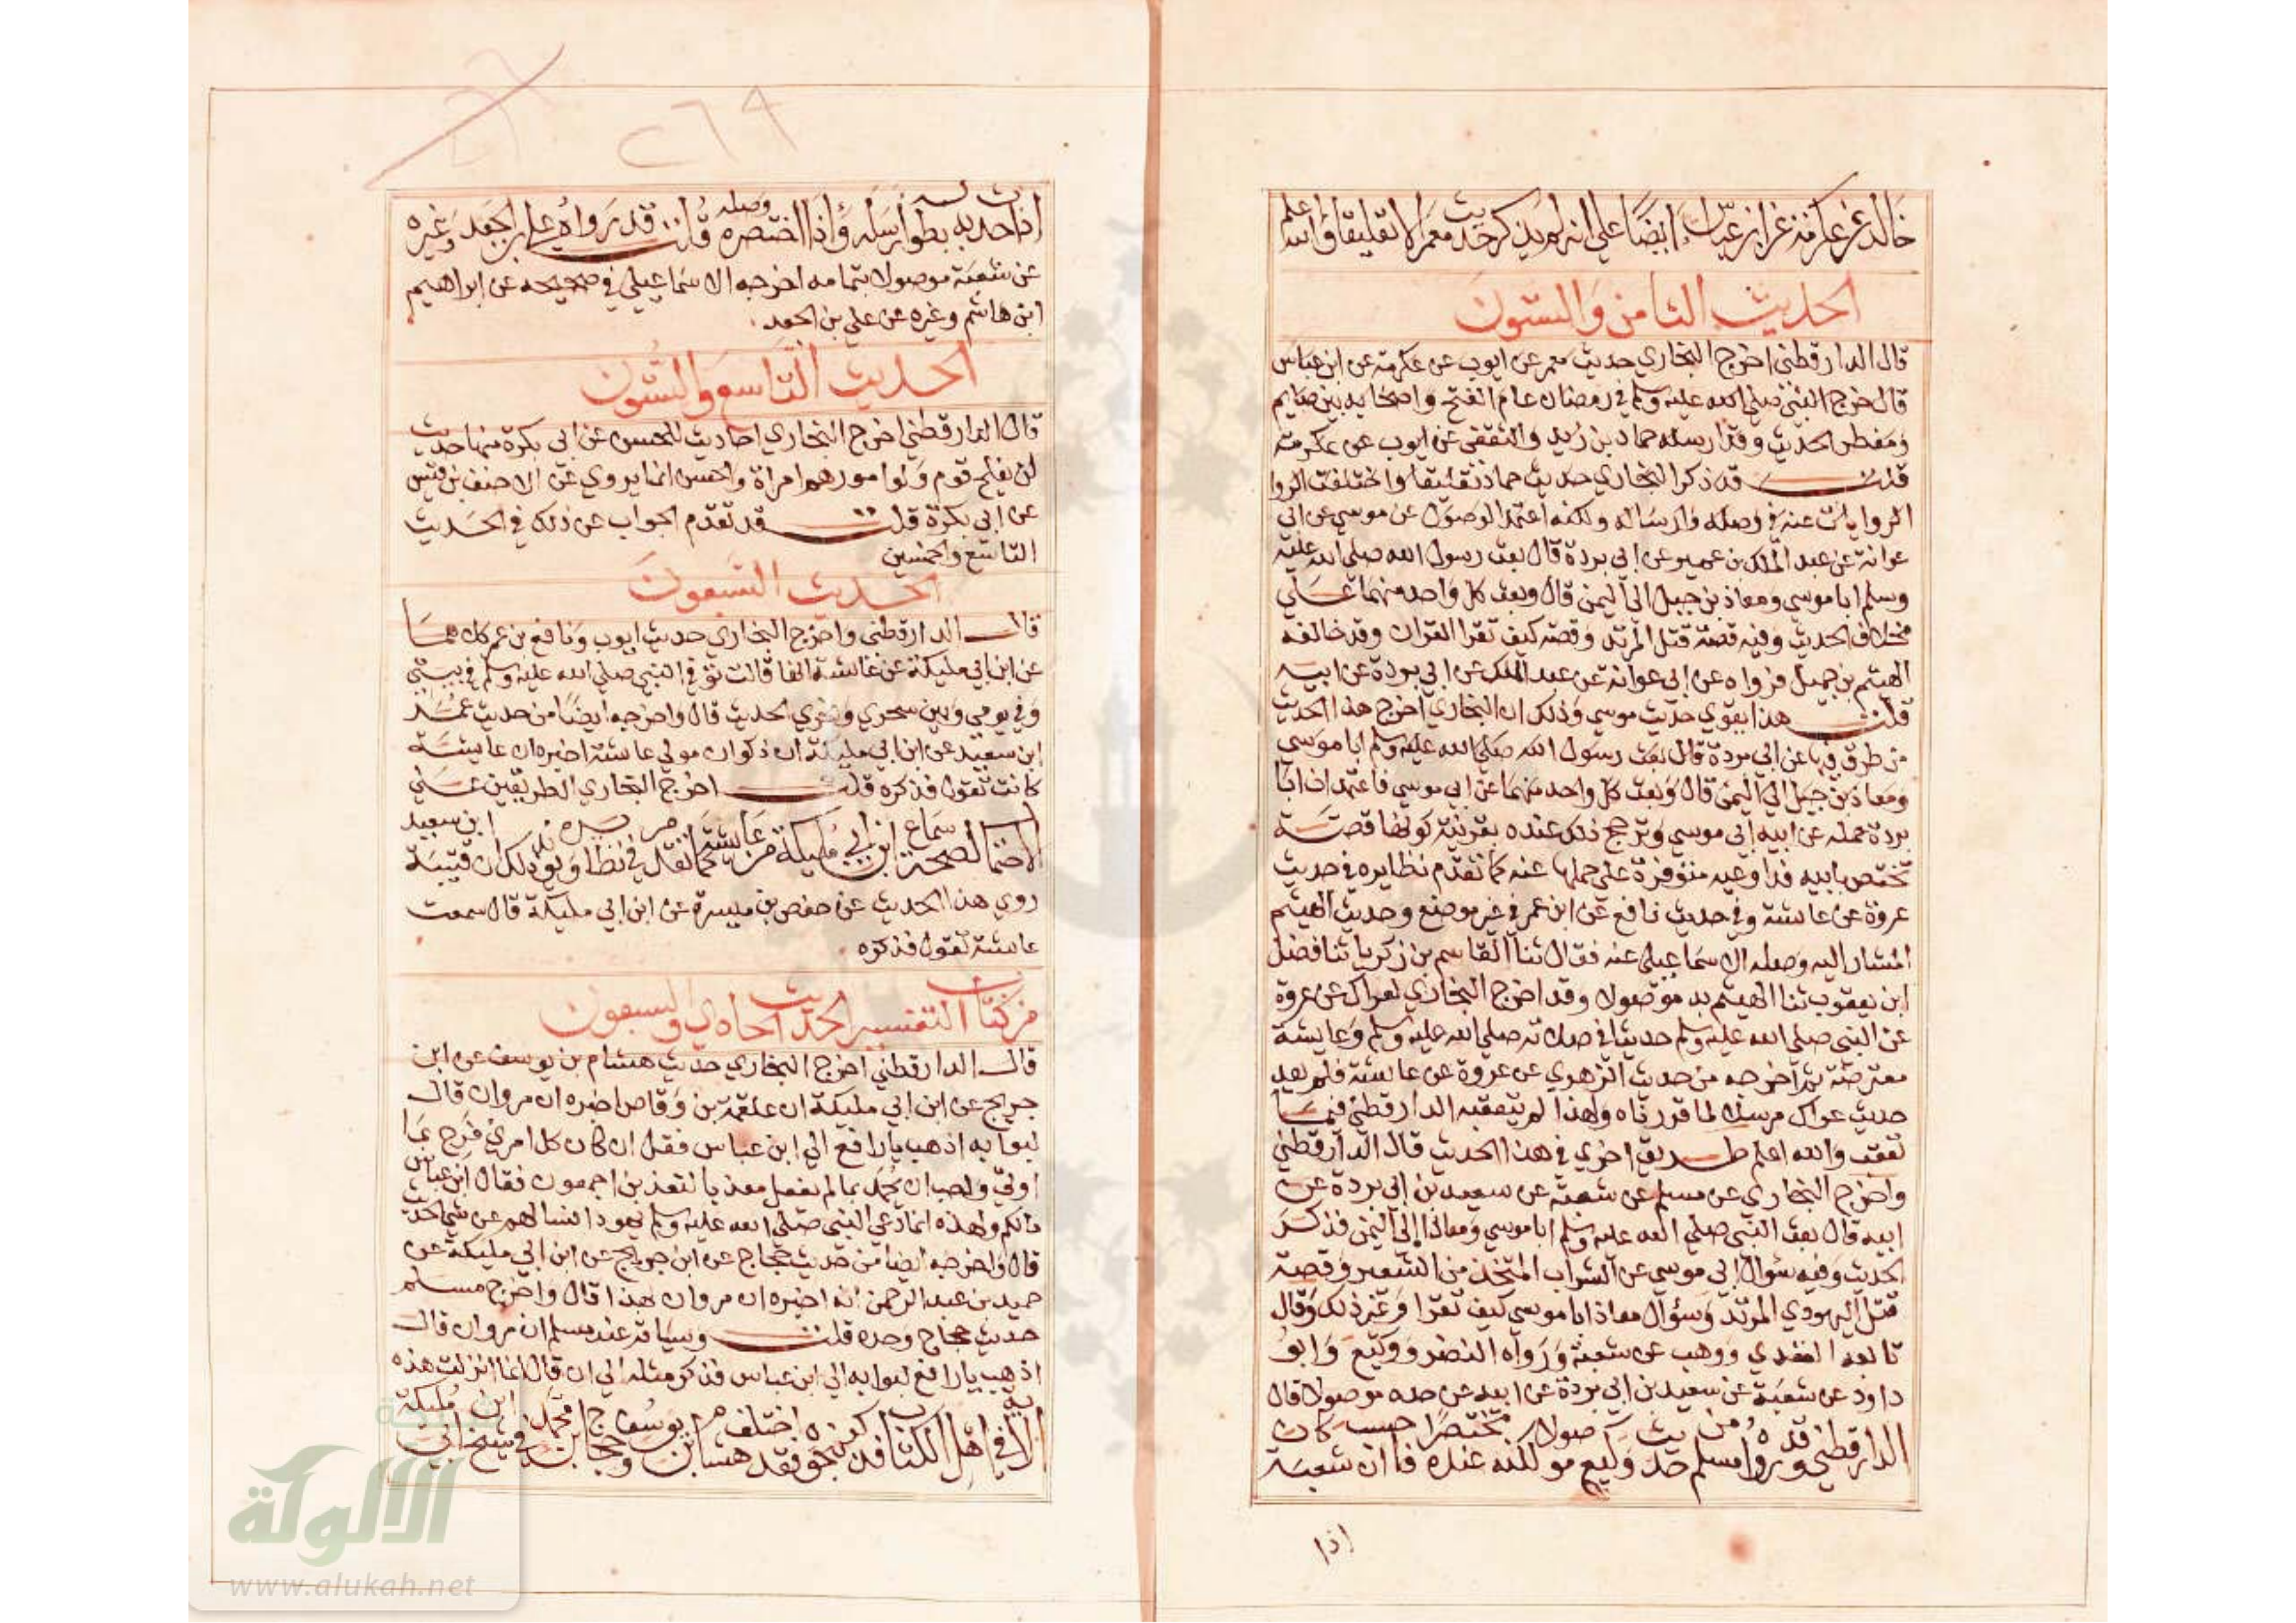 خالد عن عكرمة عن ابن عباس ايضا على انه لم يذكر حديث معمر الا تعليقا والله اعلم
الحديث الثامن والستون
قال الدارقطني اخرج البخاري حديث معمر عن ايوب عن عكرمة عن ابن عباس
قال خرج النبي صلى الله عليه وسلم في رمضان عام الفتح واصحابه بين صايم
ومفطر الحديث وقد ارسله حماد بن زيد والثقفي عن ايوب عن عكرمة
قلت قد ذكر البخاري حديث حماد تعليقا واختلفت الروا
الروايات عنه في وصله وارساله ولكنه اعتمد الوصول عن موسى عن ابي
عوانة عن عبد الملك بن عمير عن ابي بردة قال بعث رسول الله صلى الله عليه
وسلم ابا موسى ومعاذ بن جبل الى اليمن قال وبعث كل واحد منهما على
مخلاف الحديث وفيه قصة قتل المرتد وقصة كيف تقرا القران وقد خالفه
الهيثم بن جميل فرواه عن ابي عوانة عن عبد الملك عن ابي بردة عن ابيه
قلت هذا يقوي حديث موسى وذلك ان البخاري اخرج هذا الحديث
من طرق فيها عن ابي بردة قال بعث رسول الله صلى الله عليه وسلم ابا موسى
ومعاذ بن جبل الى اليمن قال وبعث كل واحد منهما عن ابي موسى فاعتمد ان ابا
بردة حمله عن ابيه ابي موسى وترجح ذلك عنده بقرينة كونها قصة
تختص بابيه فدواعيه متوفرة على حملها عنه كما تقدم نظايره في حديث
عروة عن عايشة وفي حديث نافع عن ابن عمر في غير موضع وحديث الهيثم
المشار اليه وصله الاسماعيلي عنه فقال ثنا القاسم بن زكريا ثنا فضل
ابن يعقوب ثنا الهيثم به موصولا وقد اخرج البخاري لعراك عن عروة
عن النبي صلى الله عليه وسلم حديثا في صلاته صلى الله عليه وسلم وعايشة
معترضة ثم اخرجه من حديث الزهري عن عروة عن عايشة فلم يعد
حديث عراك مرسلا لما قررناه ولهذا لم يتعقبه الدارقطني فيما
تعقب والله اعلم طريق اخرى في هذا الحديث قال الدارقطني
واخرج البخاري عن مسلم عن شعبة عن سعيد بن ابي بردة عن
ابيه قال بعث النبي صلى الله عليه وسلم ابا موسى ومعاذا الى اليمن فذكر
الحديث وفيه سؤال ابي موسى عن الشراب المتخذ من الشعير وقصة
قتل اليهودي المرتد وسؤال معاذ ابا موسى كيف تقرا وغير ذلك وقال
تابعه العقدي ووهب عن شعبة ورواه النضر ووكيع وابو
داود عن شعبة عن سعيد بن ابي بردة عن ابيه عن جده موصولا قال
الدارقطني وقد رواه مسلم من حديث وكيع موصولا مختصرا حسب كان عنده فان شعبة
اذا
٢٦٩
اذا حدث به بطوله ارسله واذا اختصره وصله قلت قد رواه علي بن الجعد وغيره
عن شعبة موصولا بتمامه اخرجه الاسماعيلي في صحيحه عن ابراهيم
ابن هاشم وغيره عن علي بن الجعد
الحديث التاسع والستون
قال الدارقطني اخرج البخاري احاديث للحسن عن ابي بكرة منها حديث
لن يفلح قوم ولوا امورهم امراة والحسن انما يروي عن الاحنف بن قيس
عن ابي بكرة قلت قد تقدم الجواب عن ذلك في الحديث
التاسع والخمسين
الحديث السبعون
قال الدارقطني واخرج البخاري حديث ايوب ونافع بن عمر كلاهما
عن ابن ابي مليكة عن عايشة انها قالت توفي النبي صلى الله عليه وسلم في بيتي
وفي يومي وبين سحري ونحري الحديث قال واخرجه ايضا من حديث عمر
ابن سعيد عن ابن ابي مليكة ان ذكوان مولى عايشة اخبره ان عايشة
كانت تقول فذكره قلت اخرج البخاري الطريقين على
الاحتمال لصحة سماع ابن ابي مليكة من عايشة كما تقدم في نظايره ويؤيد ذلك ان قتيبة ابن سعيد
روي هذا الحديث عن حفص بن ميسرة عن ابن ابي مليكة قال سمعت
عايشة تقول فذكره
من كتاب التفسير الحديث الحادي والسبعون
قال الدارقطني اخرج البخاري حديث هشام بن يوسف عن ابن
جريج عن ابن ابي مليكة ان علقمة بن وقاص اخبره ان مروان قال
لبوابه اذهب يا رافع الى ابن عباس فقل ان كان كل امرئ فرح بما
اوتي واحب ان يحمد بما لم يفعل معذبا لنعذبن اجمعون فقال ابن عباس
مالكم ولهذه انما دعى النبي صلى الله عليه وسلم يهود فسالهم عن شي الحديث
قال واخرجه ايضا من حديث حجاج عن ابن جريج عن ابن ابي مليكة عن
حميد بن عبد الرحمن انه اخبره ان مروان بهذا قال واخرج مسلم
حديث حجاج وحده قلت وسياقه عند مسلم ان مروان قال
اذهب يا رافع لبوابه الى ابن عباس فذكر مثله الى ان قال انما انزلت هذه
الاية في اهل الكتاب فذكر نحوه فقد اختلف هشام بن يوسف وحجاج بن محمد في شيخ ابن ابي مليكة
شبكة
الألوكة
www.alukah.net